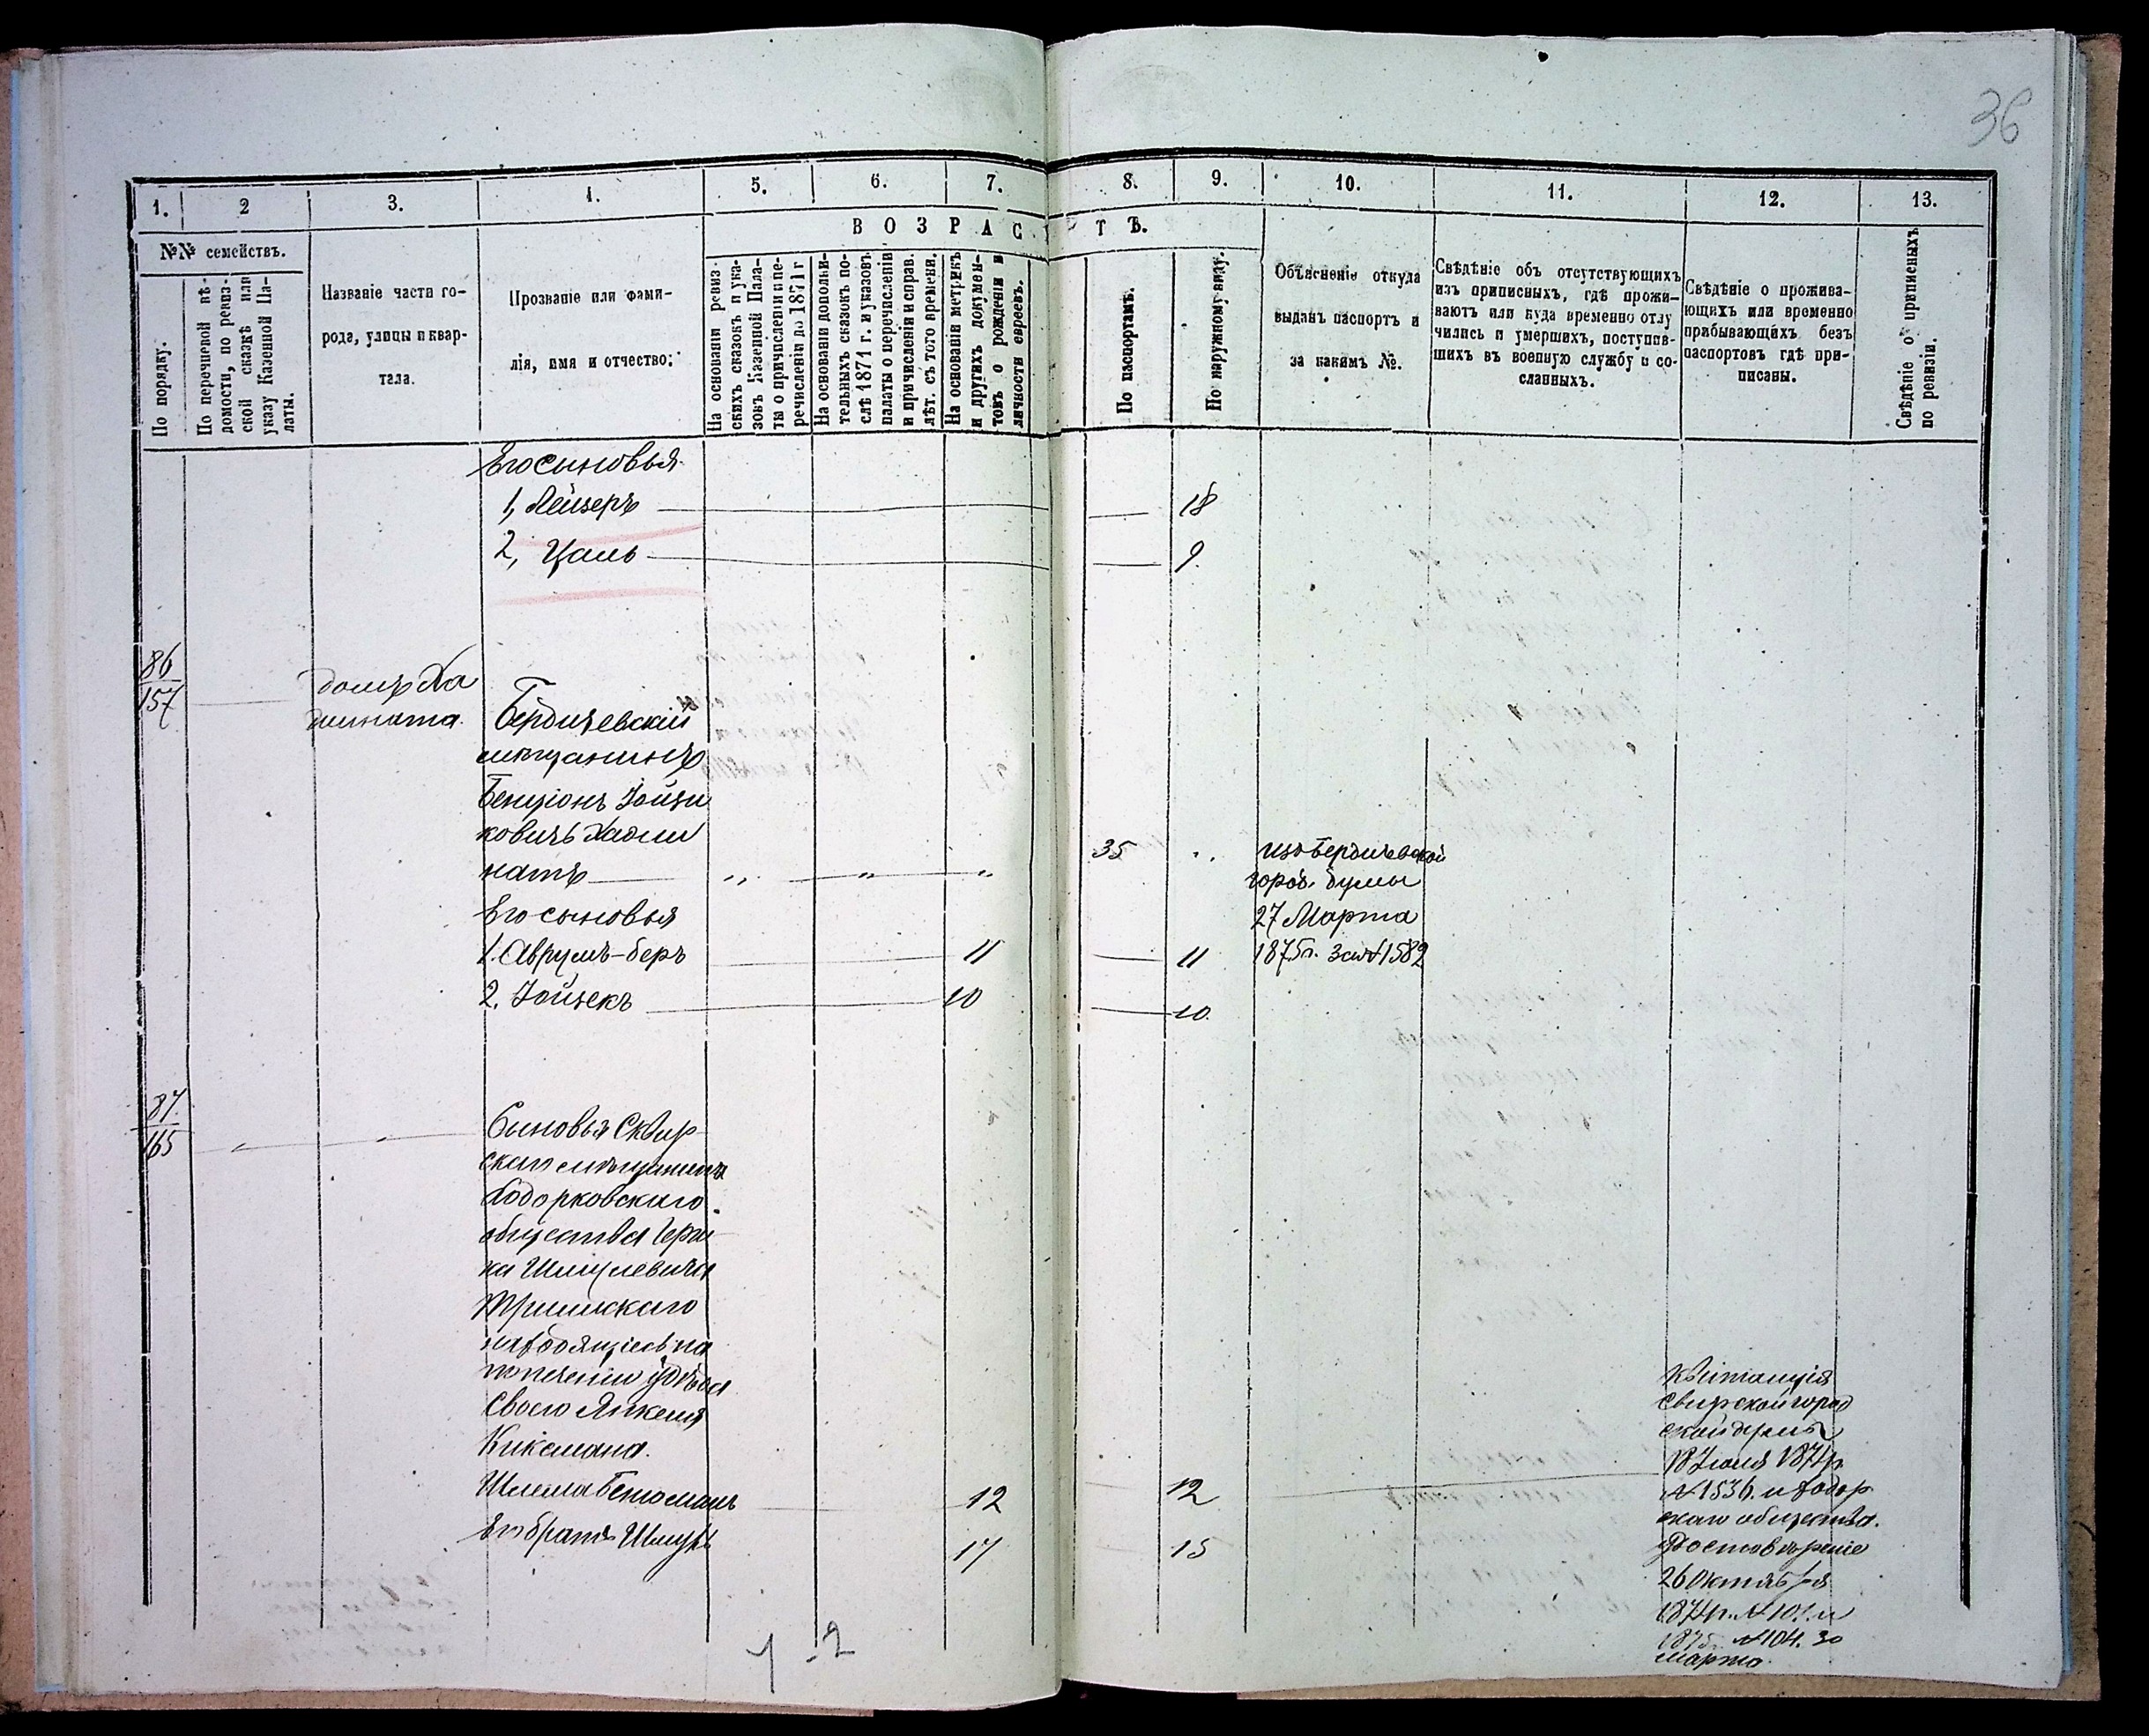 36
1. 2 3. 4. 5. 6. 7. 8. 9. 10. 11. 12. 13.
№№ семействъ.
ВОЗРАСТЪ.
По порядку.
По перечневой вѣ-
домости, по ревиз-
ской сказкѣ или
указу Казенной Па-
латы.
Названіе части го-
рода, улицы и квар-
тала.
Прозваніе или фами-
лія, имя и отчество:
На основаніи ревиз-
скихъ сказокъ и ука-
зовъ Казенной Пала-
ты о причисленіи и пе-
речисленіи до 1871 г
На основаніи дополни-
тельныхъ сказокъ по-
слѣ 1871 г. и указовъ
палаты о перечисленіи
и причисленіи и справ.
лѣт. съ того времени.
На основаніи метрикъ
и другихъ докумен-
товъ о рожденіи и
личности евреевъ.
По паспортамъ.
По наружному виду.
Объясненіе откуда
выданъ паспортъ и
за какимъ №.
Свѣдѣніе объ отсутствующихъ
изъ приписныхъ, гдѣ прожи-
ваютъ или куда временно отлу
чились и умершихъ, поступив-
шихъ въ военную службу и со-
сланныхъ.
Свѣдѣніе о прожива-
ющихъ или временно
прибывающихъ безъ
паспортовъ гдѣ при-
писаны.
Свѣдѣніе о приписныхъ
по ревизіи.
Его сыновья
1, Лейзеръ 18
2, Цаль 9.
86
157
домъ Ха
дината.
Бердичевскій
мѣщанинъ
Бенціонъ Іойзи
ковичъ Хади
натъ „ „ „ 35 „
Его сыновья
1. Аврумъ-беръ 11 11
2. Іойзекъ 10 10.
изъ Бердичевской
город. думы
27 Марта
1875 г. за № 1582
87.
165
Сыновья Сквир
скаго мѣщанина
Ходорковскаго
общества Герш
ка Шмулевича
находящіеся на
попеченіи дѣда
своего Янкеля
Шлема 12 12
Его братъ Шмуль 17 15
квитанція
Сквирской город
ской думы
18 Іюля 1874 г.
№ 1536. и Ходор
скаго общества.
Удостовѣреніе
26 Октября
1874 г. № 101. и
1875 г. № 104. 30
Марта.
1 - 2